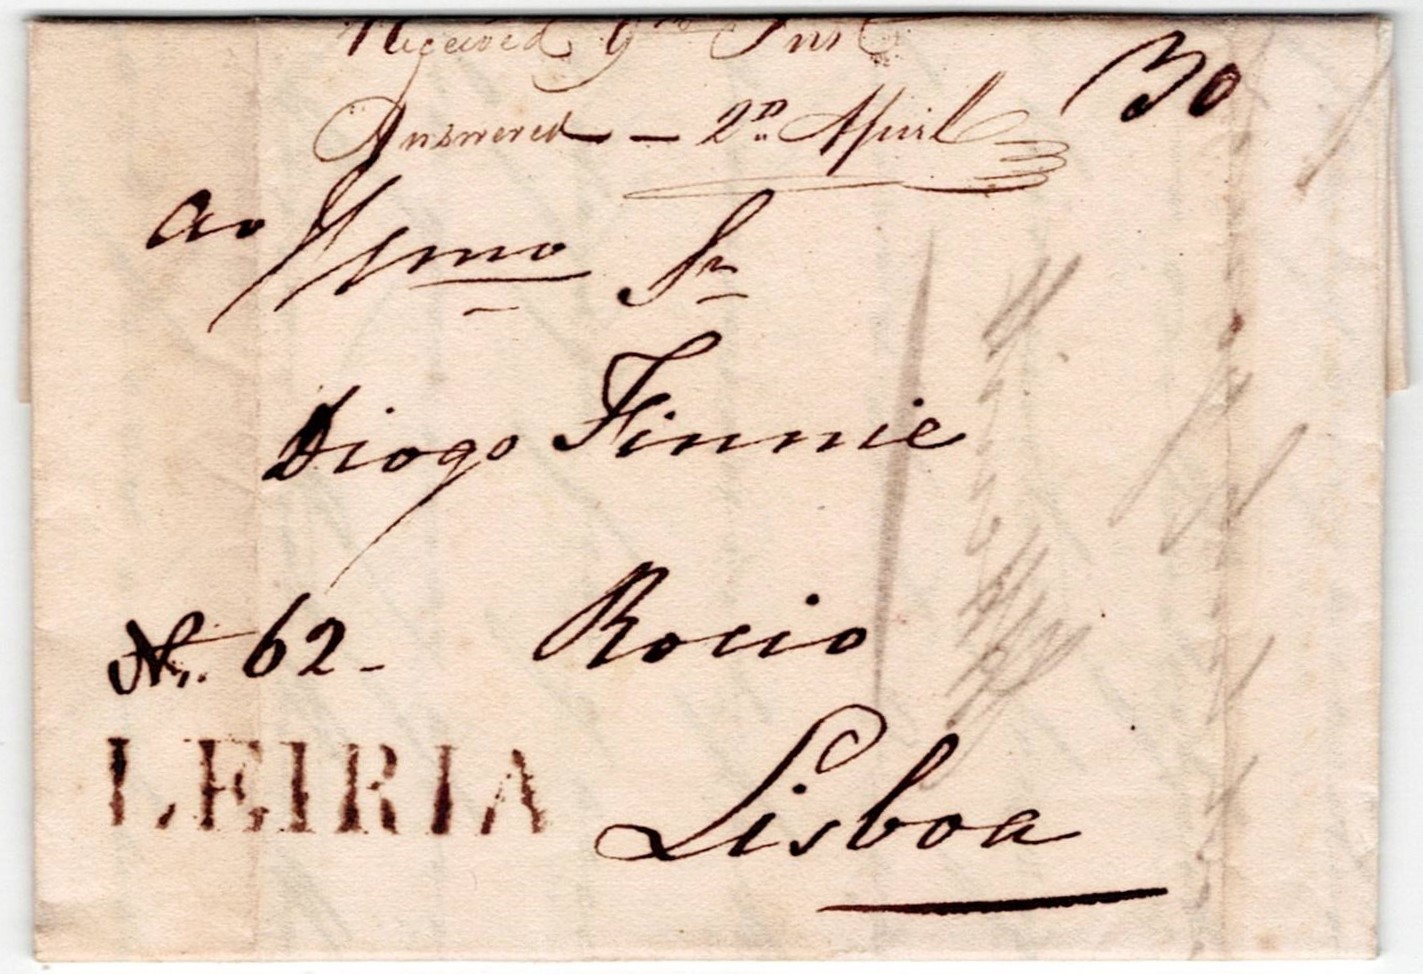 Received 9th Inst
30
Answered - 2D. April
Ao Illmo Sr
Diogo Finnie
No. 62 - Rocio
LEIRIA
Lisboa